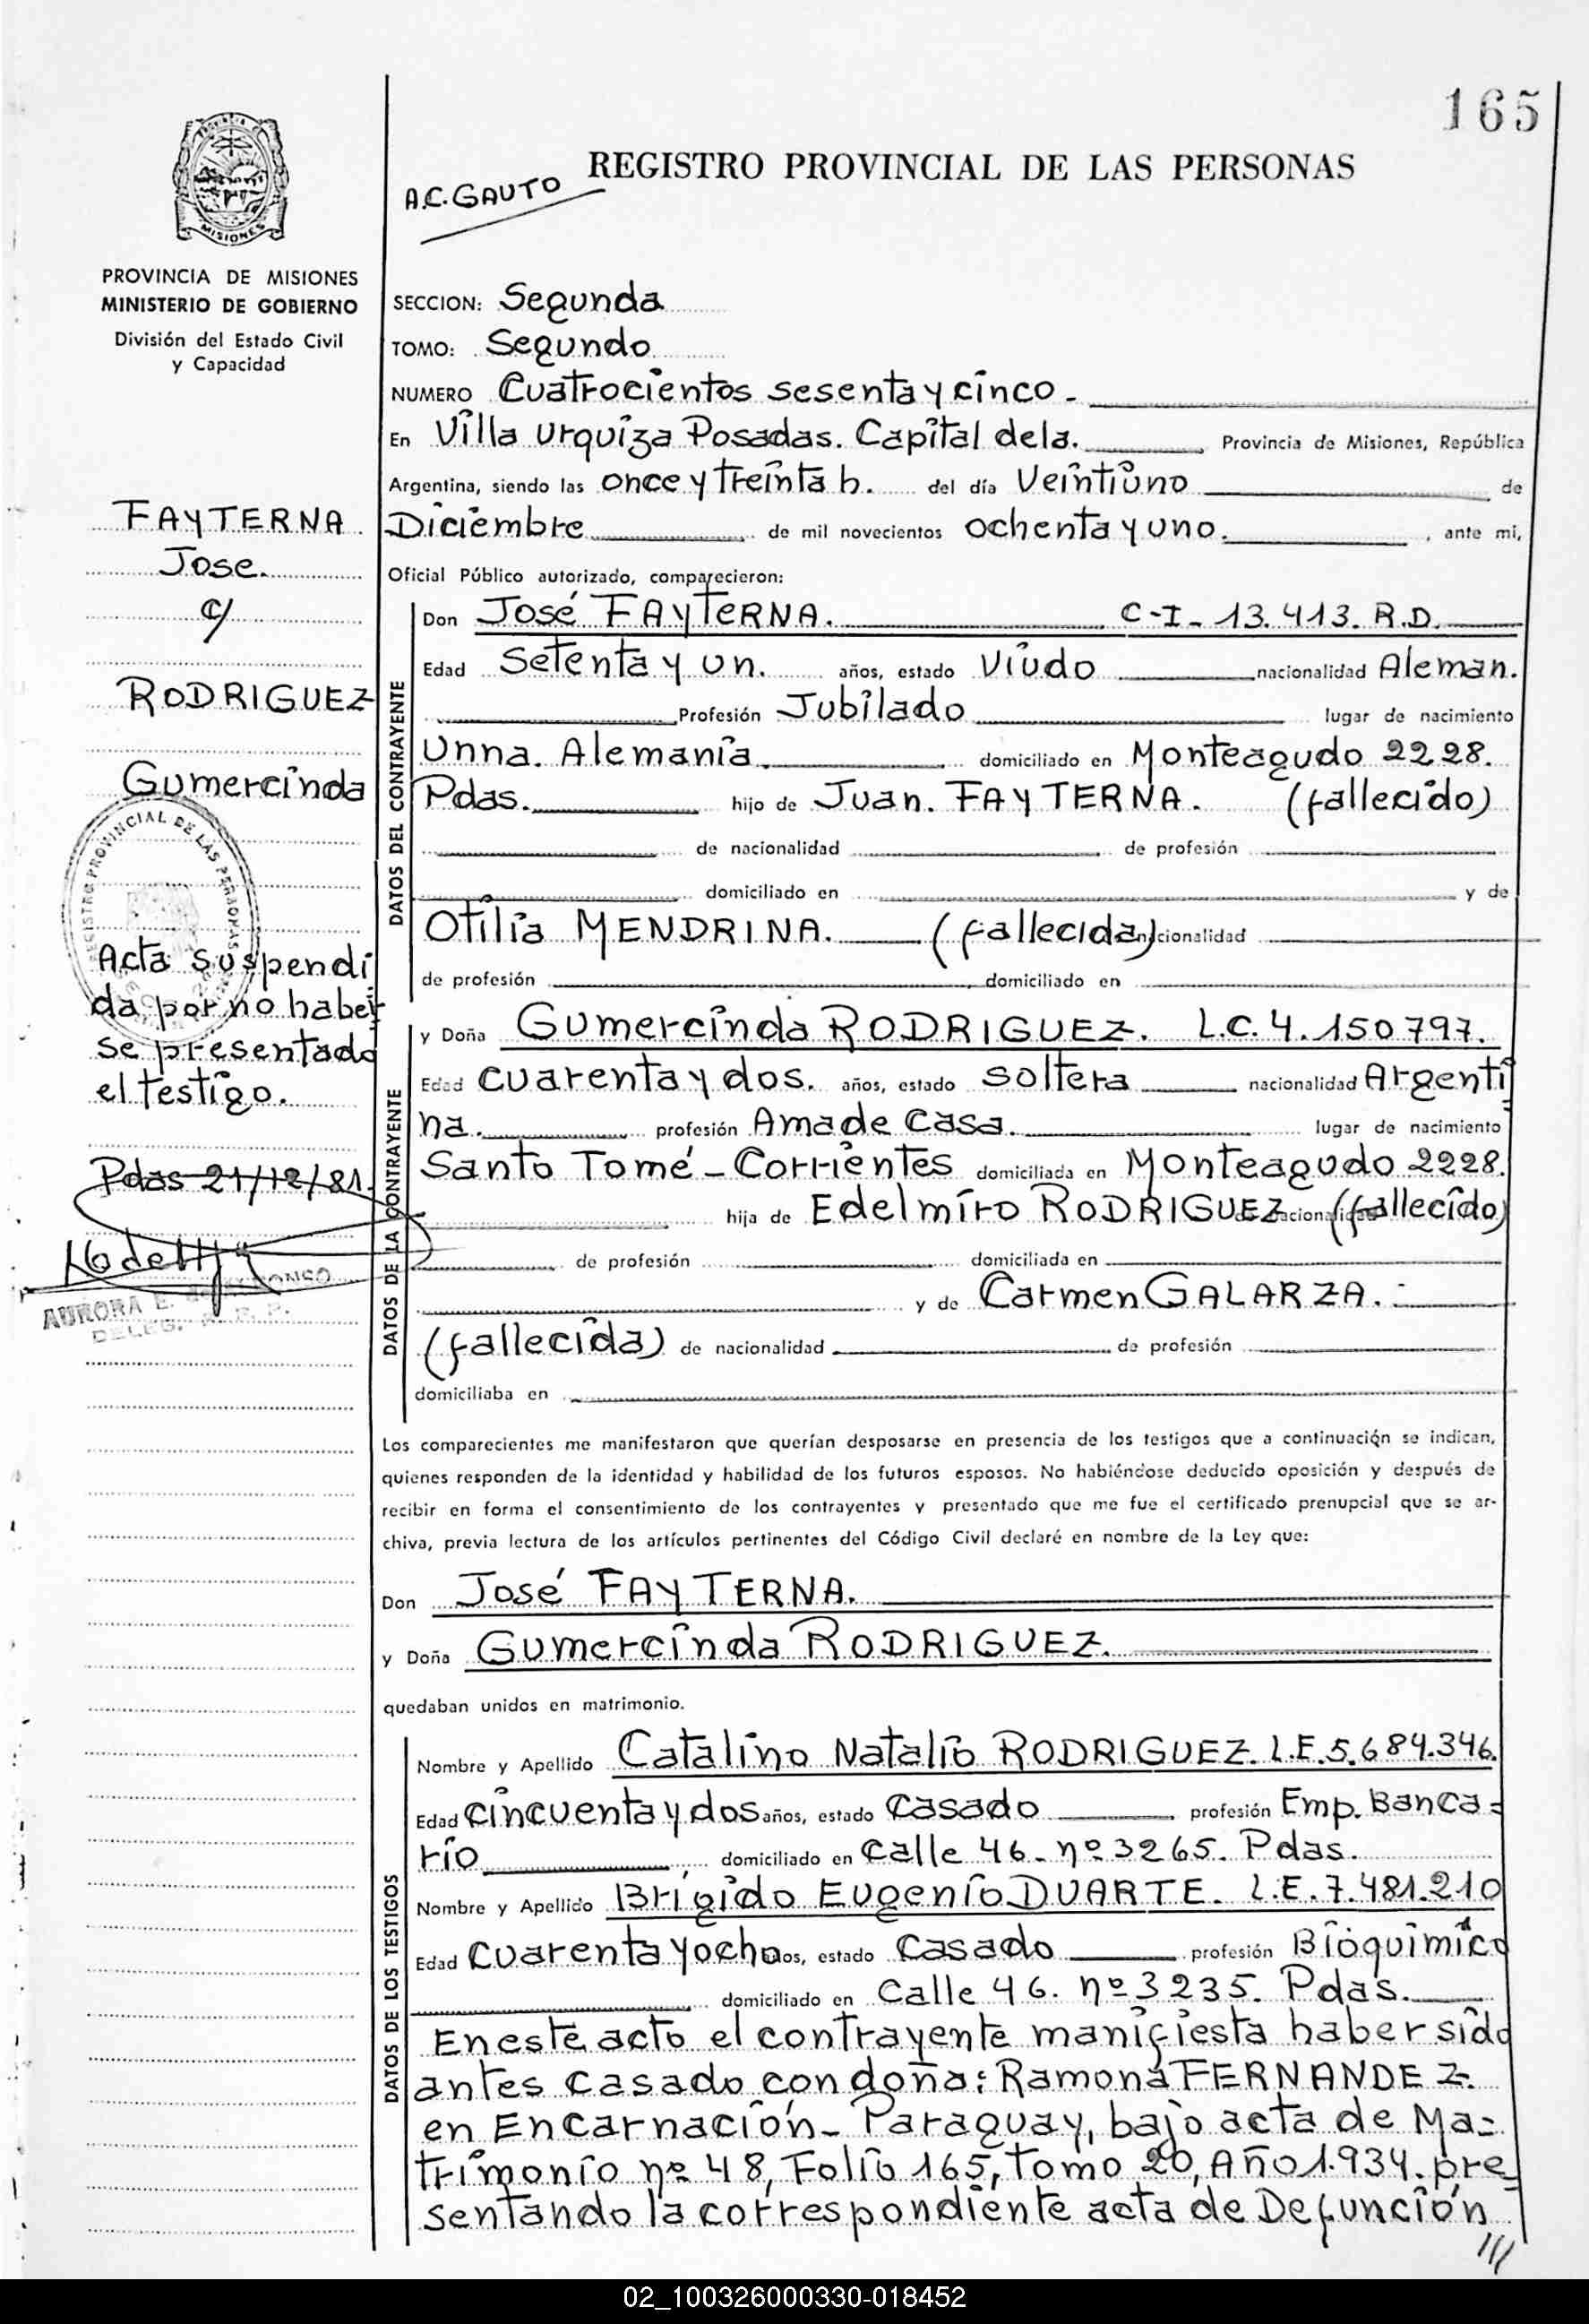 165
REGISTRO PROVINCIAL DE LAS PERSONAS
A.C. GAUTO
MISIONES
PROVINCIA DE MISIONES
MINISTERIO DE GOBIERNO
División del Estado Civil
y Capacidad
FAYTERNA
Jose.
c/
RODRIGUEZ
Gumercinda
REGISTRO PROVINCIAL DE LAS PERSONAS
Acta suspendi
da por no haber
se presentado
el testigo.
Pdas 21/12/81.
AURORA E.
DELEG. R. P. P.
SECCION: Segunda
TOMO: Segundo
NUMERO Cuatrocientos sesenta y cinco -
En Villa Urquiza Posadas. Capital de la. Provincia de Misiones, República
Argentina, siendo las once y treinta h. del día Veintiuno de
Diciembre de mil novecientos ochenta y uno. , ante mi,
Oficial Público autorizado, comparecieron:
DATOS DEL CONTRAYENTE
Don José FAYTERNA. C-I- 13.413. R.D.
Edad Setenta y un. años, estado Viudo nacionalidad Aleman.
Profesión Jubilado lugar de nacimiento
Unna. Alemania. domiciliado en Monteagudo 2228.
Pdas. hijo de Juan. FAYTERNA. (fallecido)
de nacionalidad de profesión
domiciliado en y de
Otilia MENDRINA. (fallecida) nacionalidad
de profesión , domiciliado en
DATOS DE LA CONTRAYENTE
y Doña Gumercinda RODRIGUEZ. L.C. 4.150797.
Edad cuarenta y dos. años, estado soltera nacionalidad Argenti
na. profesión Ama de Casa. lugar de nacimiento
Santo Tomé - Corrientes domiciliada en Monteagudo 2228.
hija de Edelmiro RODRIGUEZ de nacionalidad (fallecido)
de profesión domiciliada en
y de Carmen GALARZA. -
(fallecida) de nacionalidad de profesión
domiciliaba en
Los comparecientes me manifestaron que querían desposarse en presencia de los testigos que a continuación se indican,
quienes responden de la identidad y habilidad de los futuros esposos. No habiéndose deducido oposición y después de
recibir en forma el consentimiento de los contrayentes y presentado que me fue el certificado prenupcial que se ar-
chiva, previa lectura de los artículos pertinentes del Código Civil declaré en nombre de la Ley que:
Don José FAYTERNA.
y Doña Gumercinda RODRIGUEZ.
quedaban unidos en matrimonio.
DATOS DE LOS TESTIGOS
Nombre y Apellido Catalino Natalio RODRIGUEZ. L.E. 5.684.346.
Edad cincuenta y dos años, estado Casado profesión Emp. Banca=
rio , domiciliado en Calle 46. nº 3265. Pdas.
Nombre y Apellido Brígido Eugenio DUARTE. L.E. 7.481.210
Edad cuarenta y ocho años, estado Casado profesión Bioquimico
domiciliado en Calle 46. nº 3235. Pdas.
En este acto el contrayente manifiesta haber sido
antes casado con doña: Ramona FERNANDEZ.
en Encarnación - Paraguay, bajo acta de Ma=
trimonio nº 48, Folio 165, Tomo 20, Año 1.934. pre_
sentando la correspondiente acta de Defunción
///
02_100326000330-018452